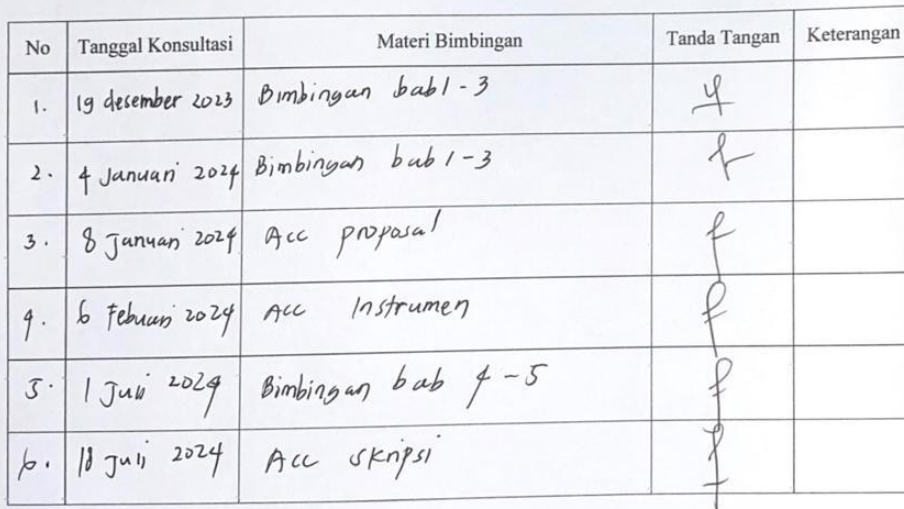 No Tanggal Konsultasi Materi Bimbingan Tanda Tangan Keterangan
1. 19 desember 2023 Bimbingan bab 1 - 3
2. 4 Januari 2024 Bimbingan bab 1 - 3
3. 8 Januari 2024 Acc proposal
4. 6 Febuari 2024 Acc Instrumen
5. 1 Juli 2024 Bimbingan bab 4 - 5
6. 18 Juli 2024 Acc skripsi